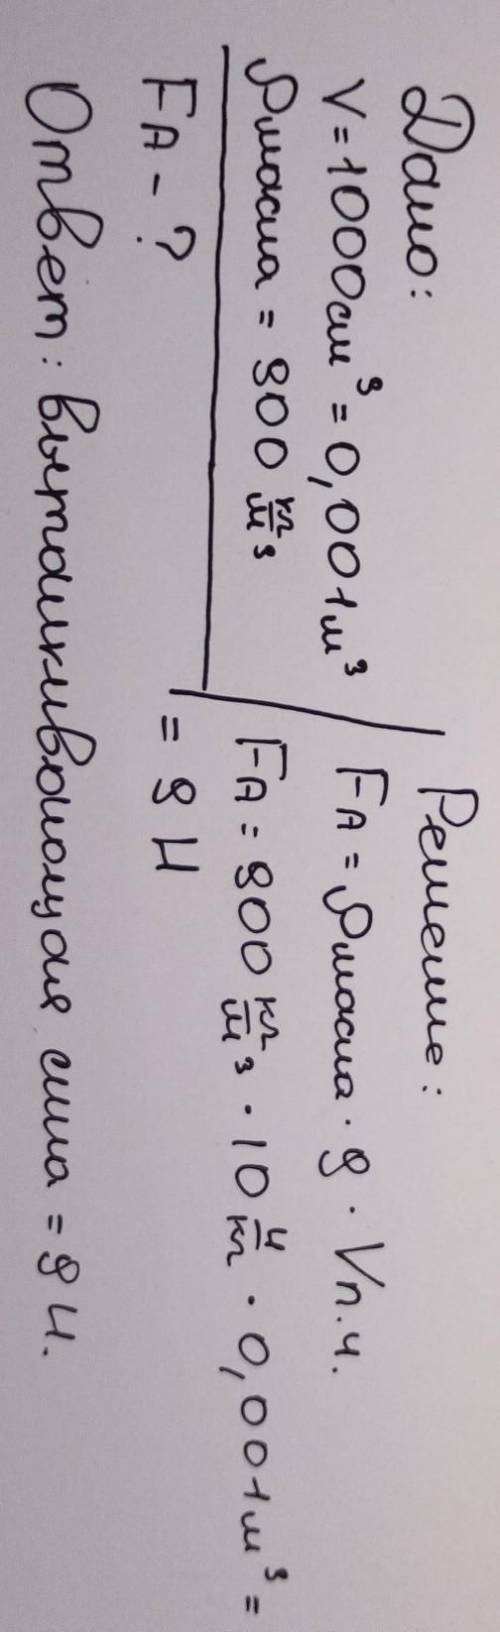 Дано:
V = 1000 см³ = 0,001 м³
ρмасла = 900 кг/м³
FA - ?
Решение:
FA = ρмасла · g · Vп.ч.
FA = 900 кг/м³ · 10 Н/кг · 0,001 м³ =
= 9 Н
Ответ: выталкивающая сила = 9 Н.